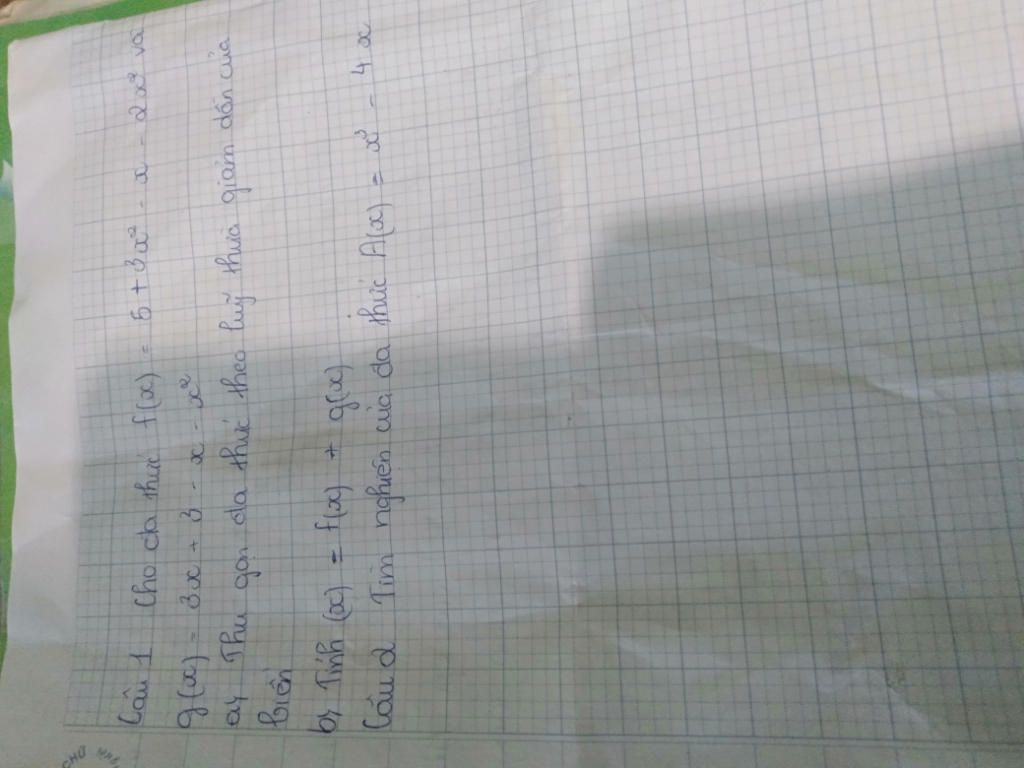 Câu 1 Cho đa thức f(x) = 5 + 3x² - x - 2x² và
g(x) = 3x + 3 - x - x²
a, Thu gọn đa thức theo luỹ thừa giảm dần của
biến
b, Tính (x) = f(x) + g(x)
Câu 2 Tìm nghiệm của đa thức A(x) = x² - 4x